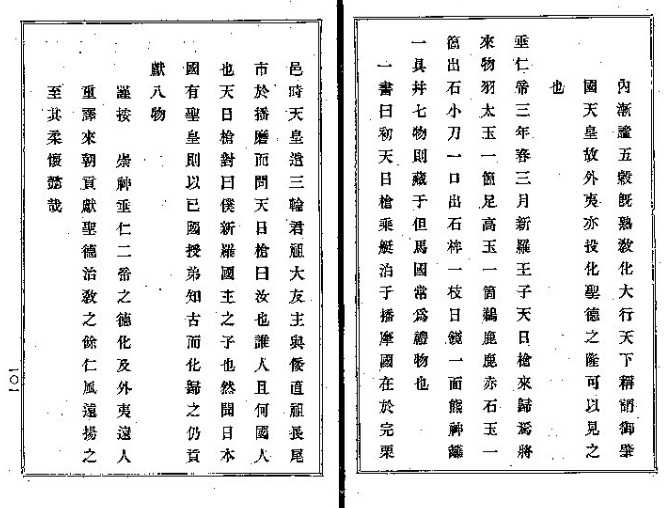 內漸謐五穀既熟敎化大行天下稱謂御肇
國天皇故外夷亦投化聖德之隆可以見之
也
垂仁帝三年春三月新羅王子天日槍來歸焉將
來物羽太玉一箇足高玉一箇鵜鹿鹿赤石玉一
箇出石小刀一口出石桙一枝日鏡一面熊神籬
一具幷七物則藏于但馬國常爲禮物也
一書曰初天日槍乘艇泊于播摩國在於宍粟
邑時天皇遣三輪君祖大友主與倭直祖長尾
市於播磨而問天日槍曰汝也誰人且何國人
也天日槍對曰僕新羅國主之子也然聞日本
國有聖皇則以已國授弟知古而化歸之仍貢
獻八物
謹按 崇神垂仁二帝之德化及外夷遠人
重譯來朝貢獻聖德治敎之餘仁風遠揚之
至其柔懷懿哉
一〇一